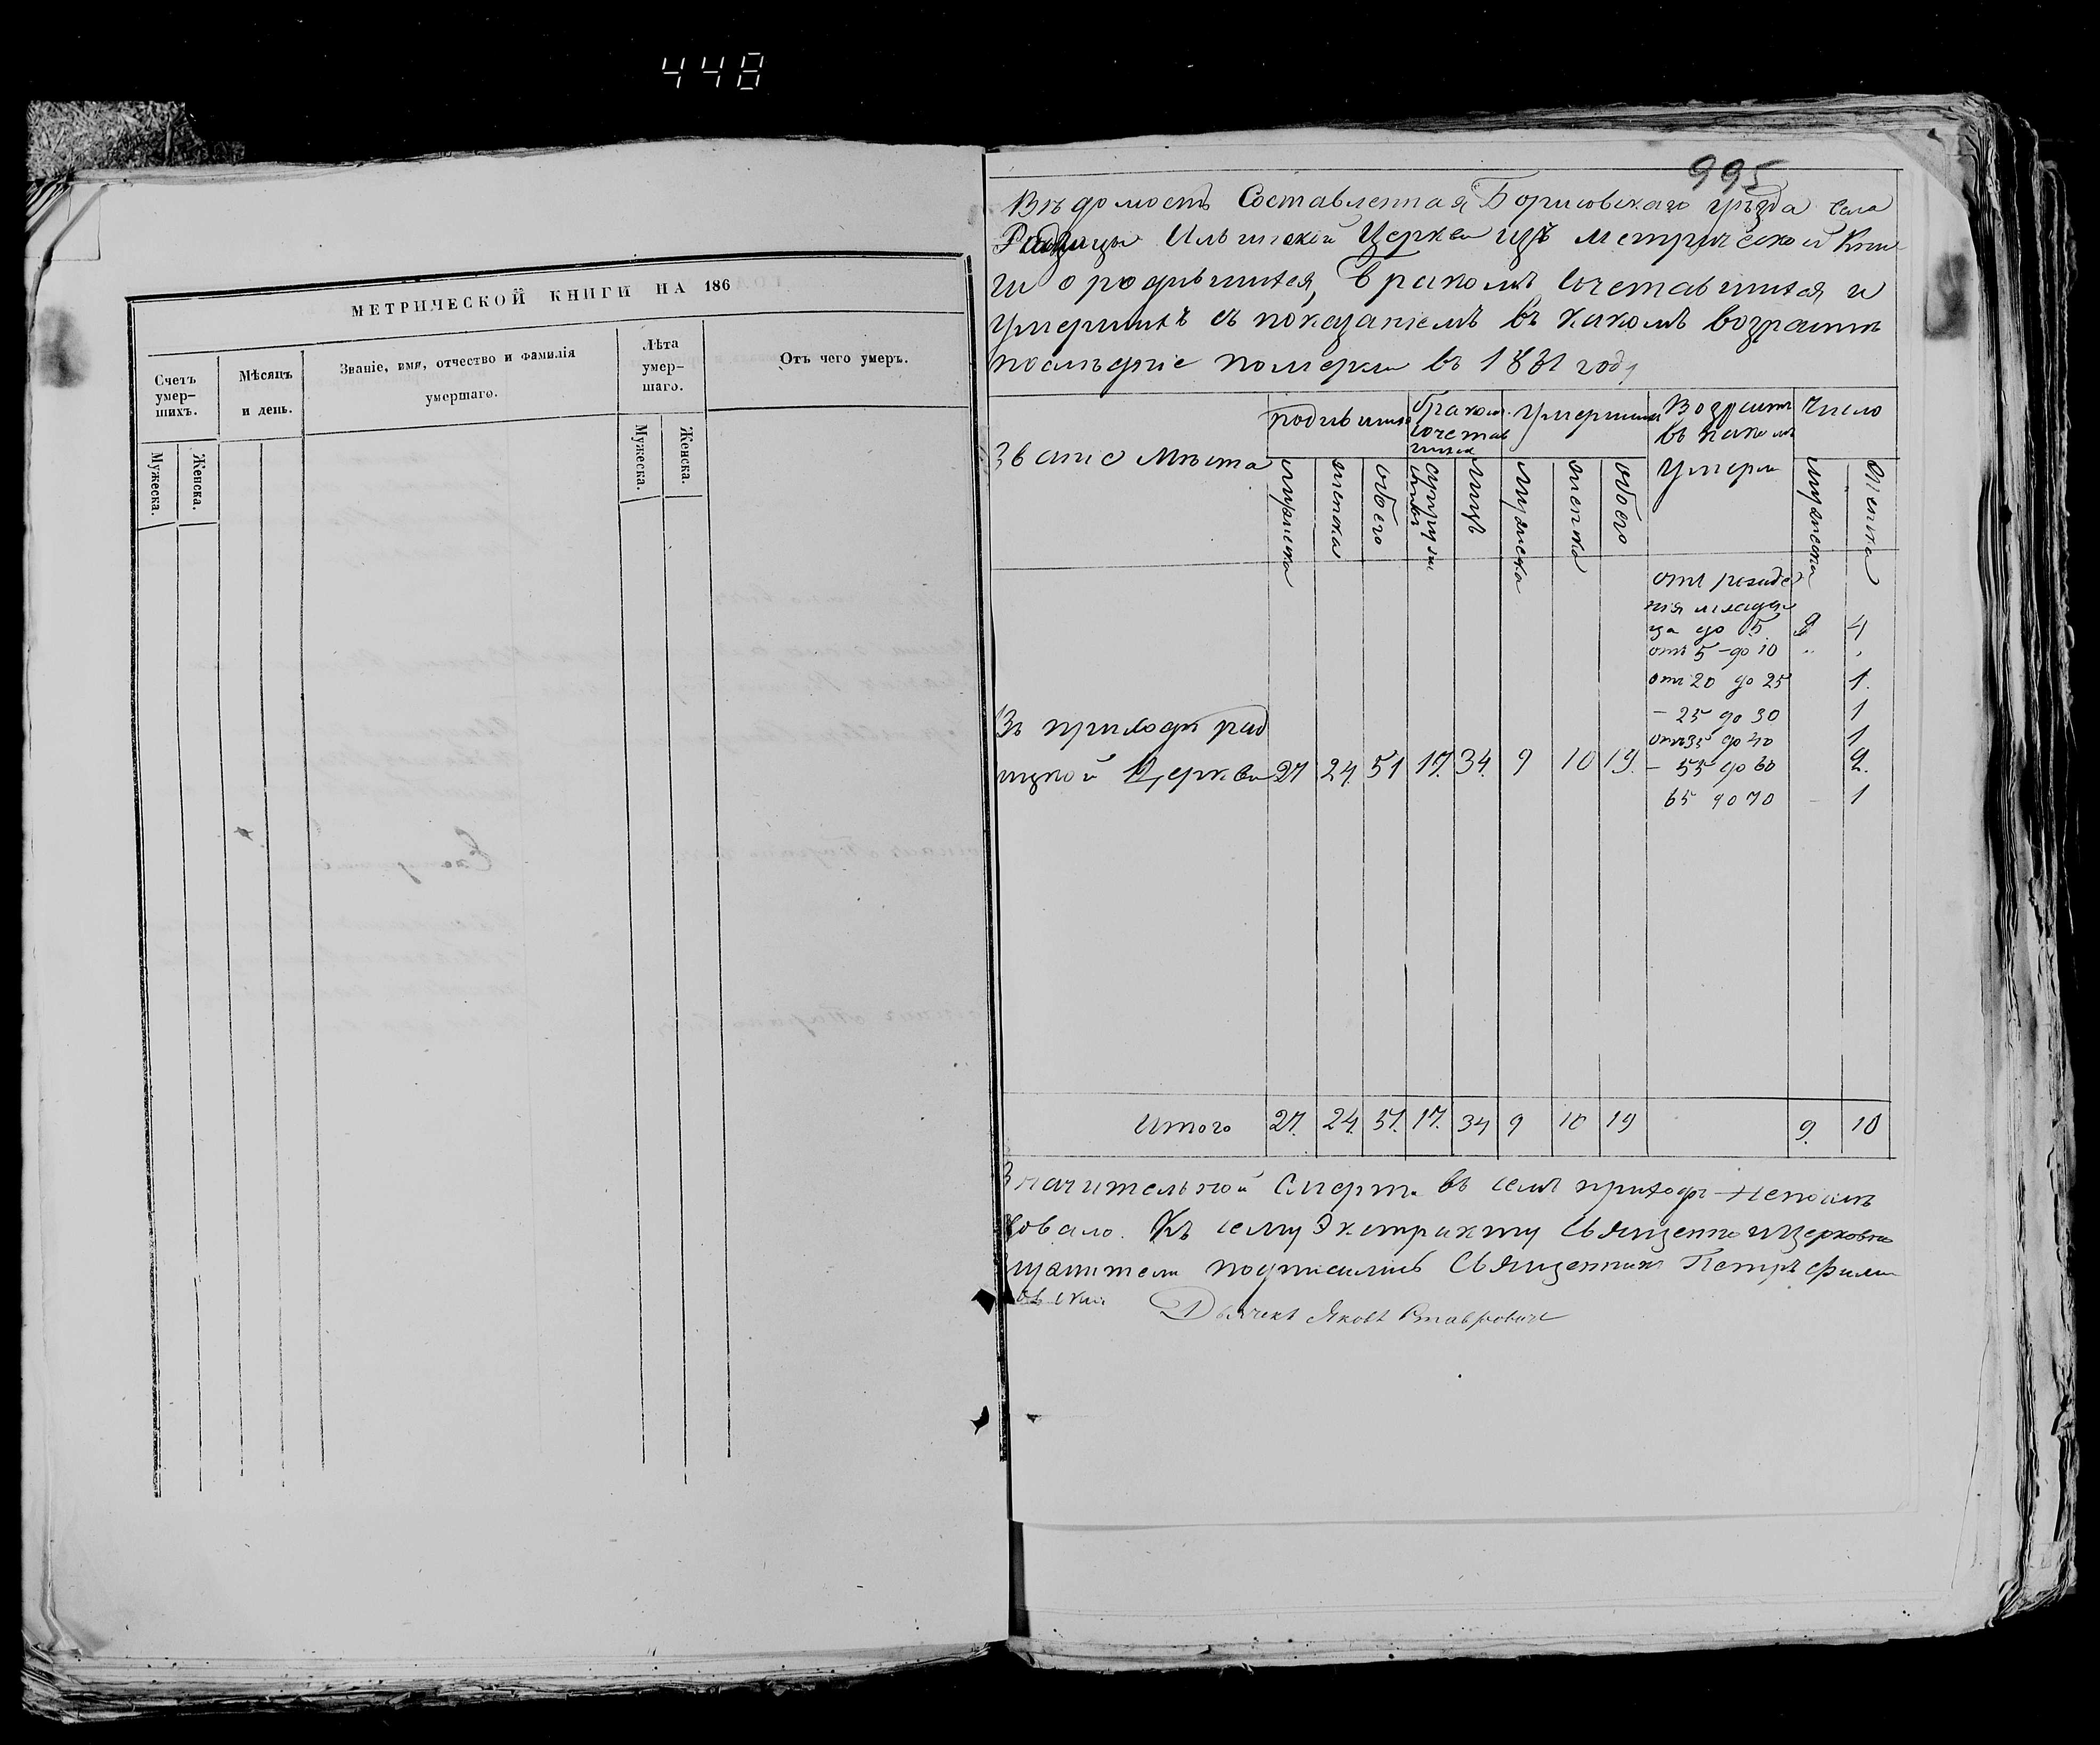 448
МЕТРИЧЕСКОЙ КНИГИ НА 186
Счетъ умер-шихъ.
Мѣсяцъ и день.
Званіе, имя, отчество и фамилія умершаго.
Лѣта умер-шаго.
Отъ чего умеръ.
Мужеска.
Женска.
Мужеска.
Женска.
995
Вѣдомость Составленная Борисовскаго уѣзда села
Радзицы Ильинской Церкви изъ метрической Кни
ги о родившихся, бракомъ сочетавшихся и
умершихъ съ показаніемъ въ какомъ возрасте
послѣдніе померли въ 1881 году
Званіе Мѣста
родившихся
бракомъ сочетав шихся
Умершихъ
Возрастъ въ какомъ умерли
Число
мужеска
женска
обоего
супруже
лицъ
мужеска
женска
обоего
мужеска
женска
отъ рожде
нія младен
ца до 5 9 4
отъ 5 - до 10 " "
отъ 20 до 25 1.
- 25 до 30 1
отъ 35 до 40 1
- 55 до 60 2.
65 до 70 - 1
Въ приходѣ рад
ицкой Церкви 27 24 51 17. 34. 9 10 19.
Итого 27. 24. 51. 17. 34 9 10 19 9. 10
Значительной Смерти въ семъ приходѣ непослѣ
довало. Къ сему Экстракту Священно и Церковно
служители подписались Священникъ Петръ Фили
Дьячекъ Яковъ